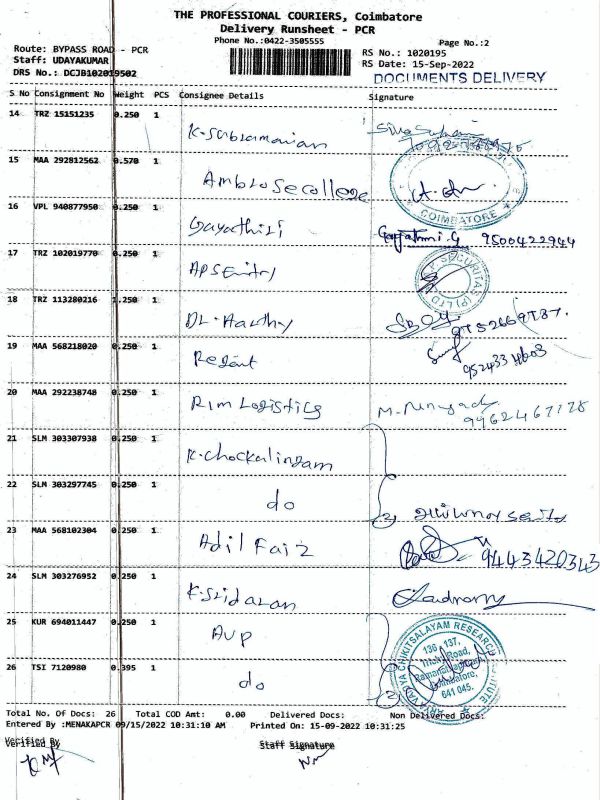 THE PROFESSIONAL COURIERS, Coimbatore
Delivery Runsheet - PCR
Phone No.:0422-3505555
Page No.:2
Route: BYPASS ROAD - PCR
RS No.: 1020195
Staff: UDAYAKUMAR
RS Date: 15-Sep-2022
DRS No.: DCJB102019502
DOCUMENTS DELIVERY
S No Consignment No Weight PCS Consignee Details Signature
14 TRZ 15151235 0.250 1
K-Subramanian
15 MAA 292812562 0.570 1
Ambrose college
COIMBATORE
16 VPL 940877950 0.250 1
Gayathiri
Gayathri.G 9500422944
17 TRZ 102019770 0.250 1
SECURITAS (P) LTD
18 TRZ 113280216 1.250 1
Dr. Aarthy
19 MAA 568218020 0.250 1
Regent
20 MAA 292238748 0.250 1
Rim Logistics
21 SLM 303307938 0.250 1
K-chockalingam
22 SLM 303297745 0.250 1
do
23 MAA 568102304 0.250 1
Adil Faiz
9443420343
24 SLM 303276952 0.250 1
K-Sridaran
25 KUR 694011447 0.250 1
AVP
ARYA VAIDYA CHIKITSALAYAM RESEARCH INSTITUTE
136 - 137,
Trichy Road,
Ramanathapuram,
Coimbatore,
641 045.
26 TSI 7120980 0.395 1
do
Total No. Of Docs: 26 Total COD Amt: 0.00 Delivered Docs: Non Delivered Docs:
Entered By :MENAKAPCR 09/15/2022 10:31:10 AM Printed On: 15-09-2022 10:31:25
Verified By
Staff Signature